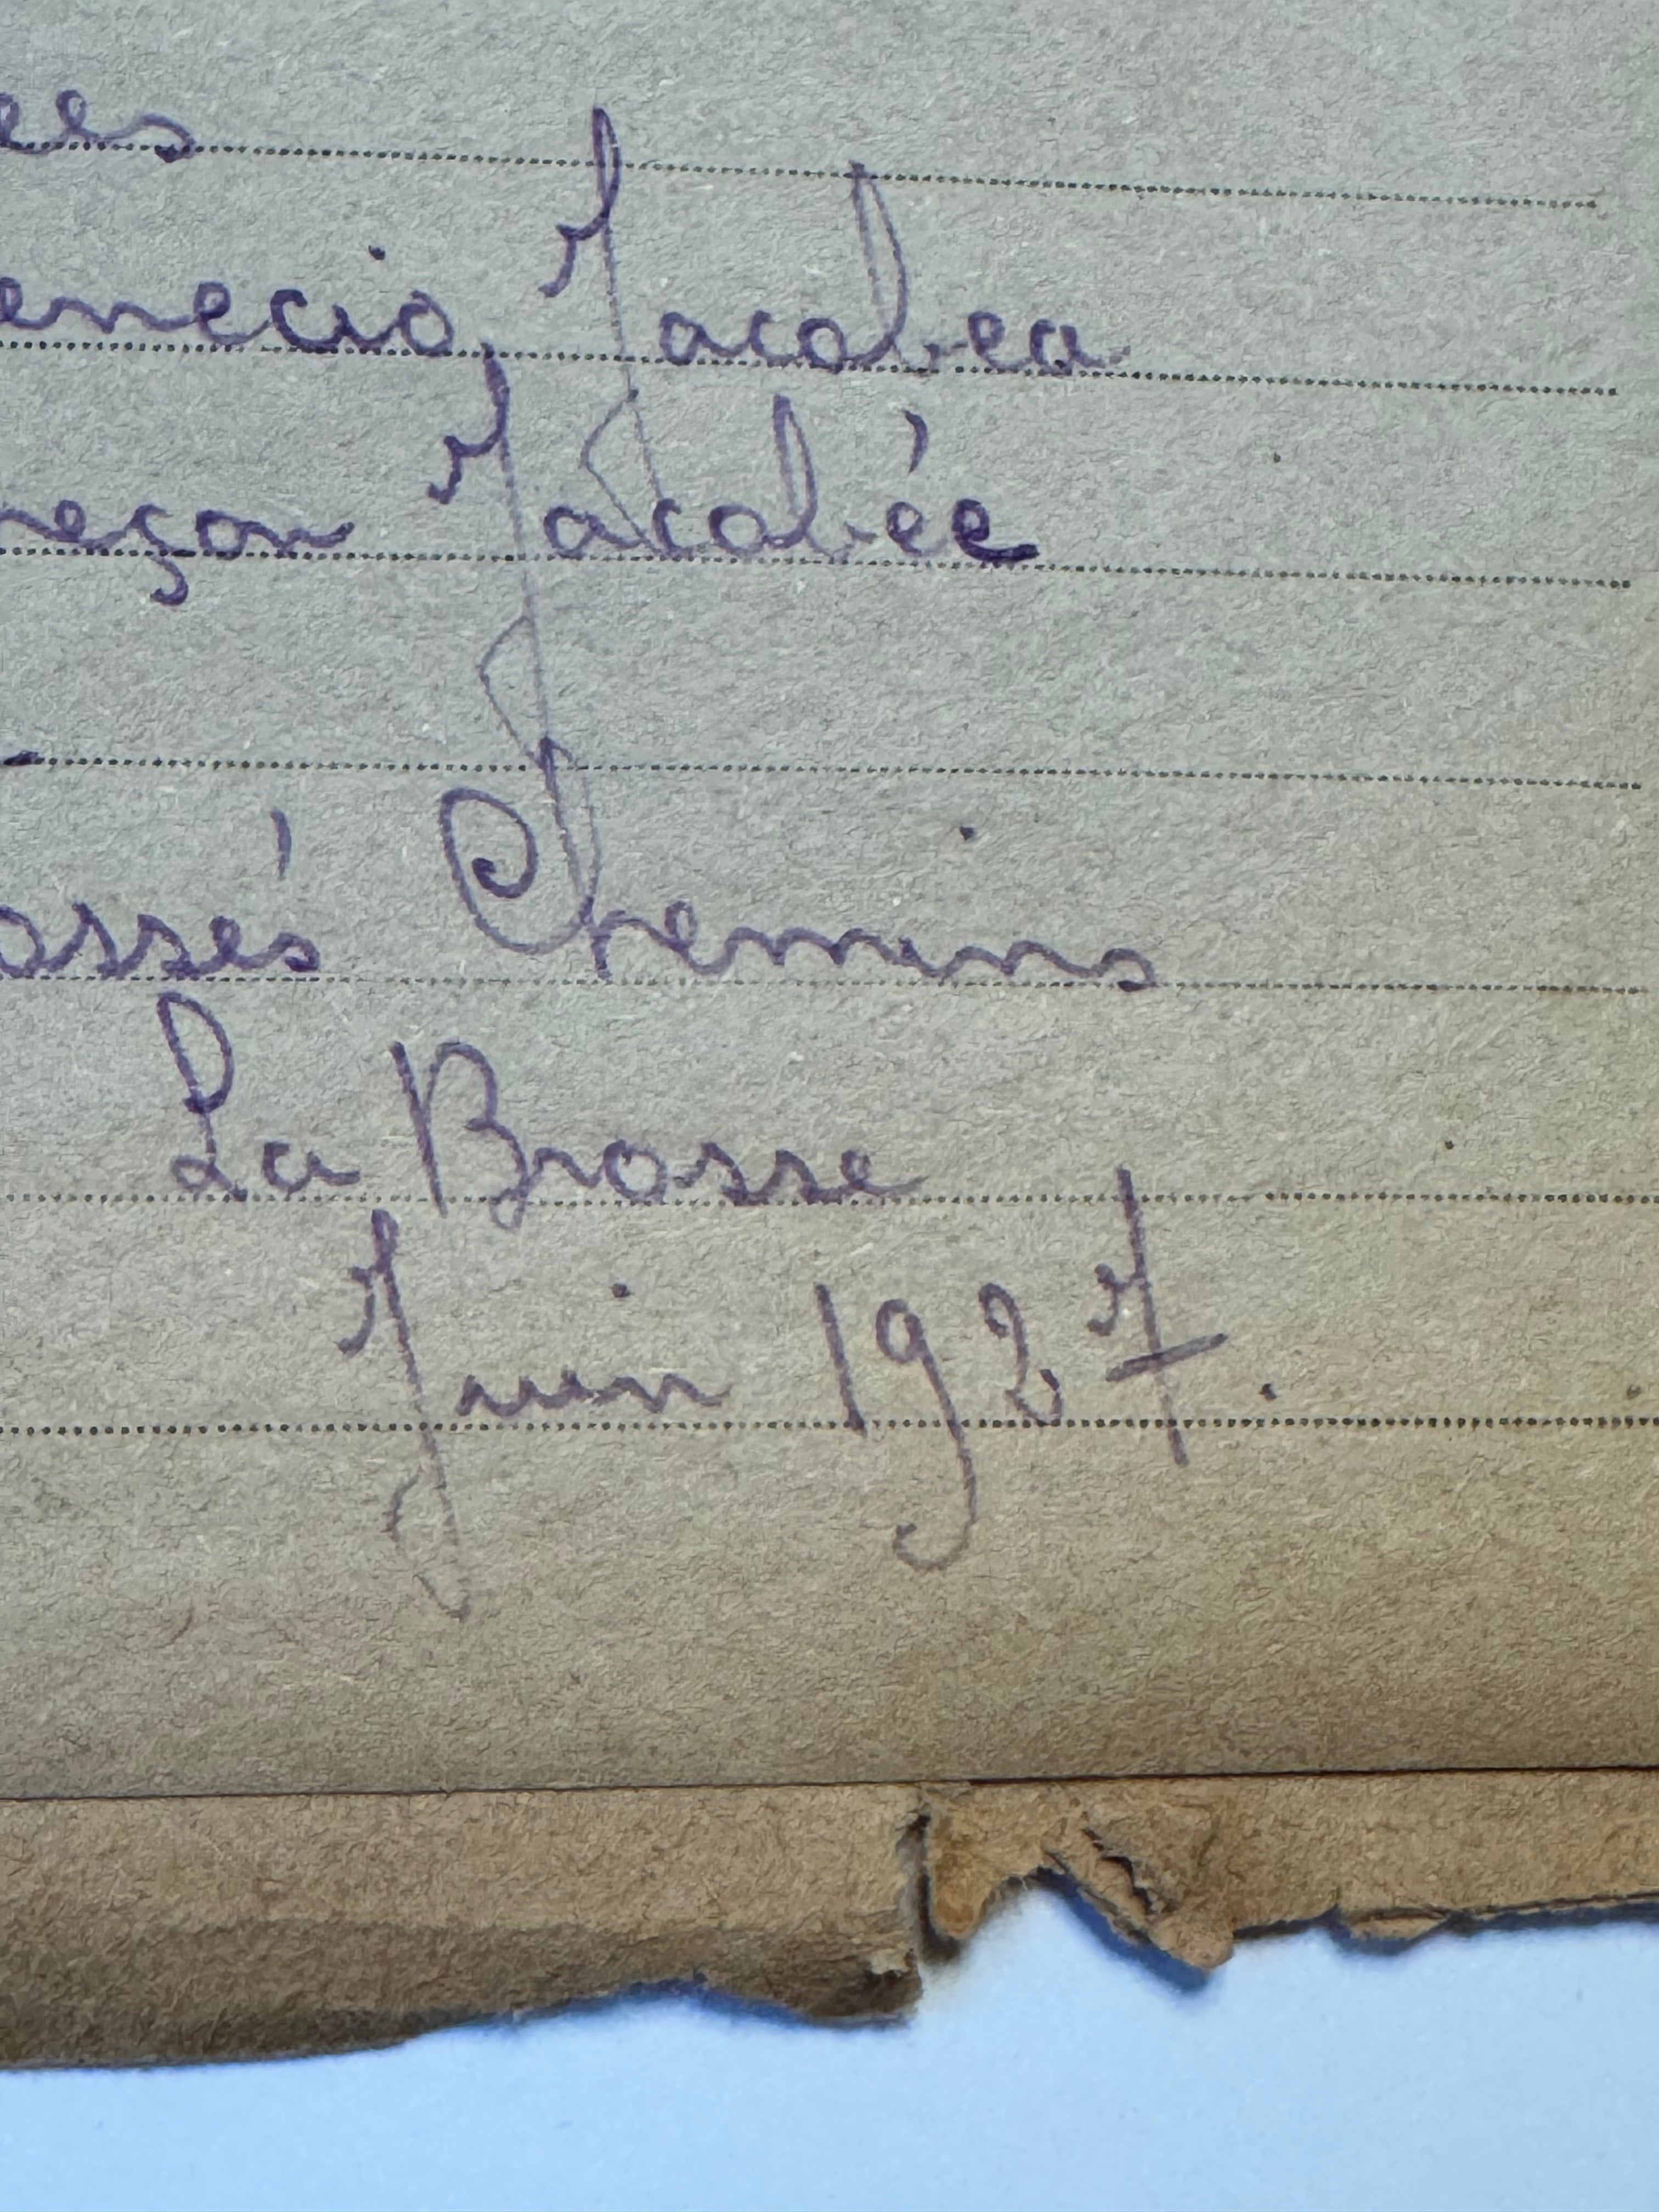 ees
enecio Jacobea
neçon Jacobée
ossés Chemins
La Brosse
Juin 1927.